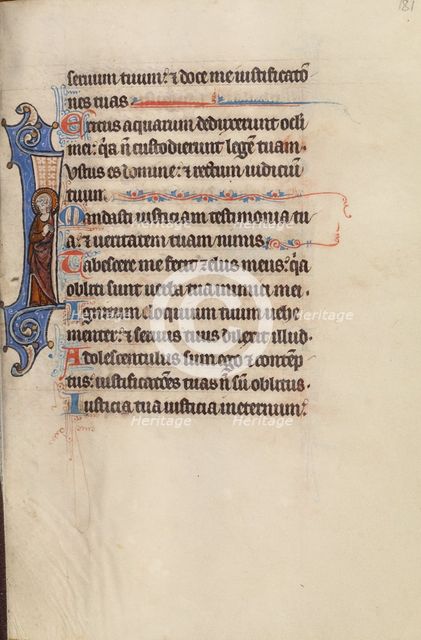 181
seruum tuum: ⁊ doce me iustificatio
nes tuas
Exitus aquarum deduxerunt oculi
mei: qͣ ñ custodierunt legẽ tuam.
Iustus es domine: ⁊ rectum iudiciũ
tuum
Mandasti iusticiam testimonia tu
a: ⁊ ueritatem tuam nimis.
Tabescere me fecit zelus meus: qͣa
obliti sunt uerba tua inimici mei.
Ignitum eloquium tuum uehe
menter: ⁊ seruus tuus dilexit illud.
Adolescentulus sum ego ⁊ contẽp
tus: iustificatões tuas ñ sũ oblitus.
Iusticia tua iusticia in eternum:
Heritage Heritage
Heritage Heritage
Heritage Heritage